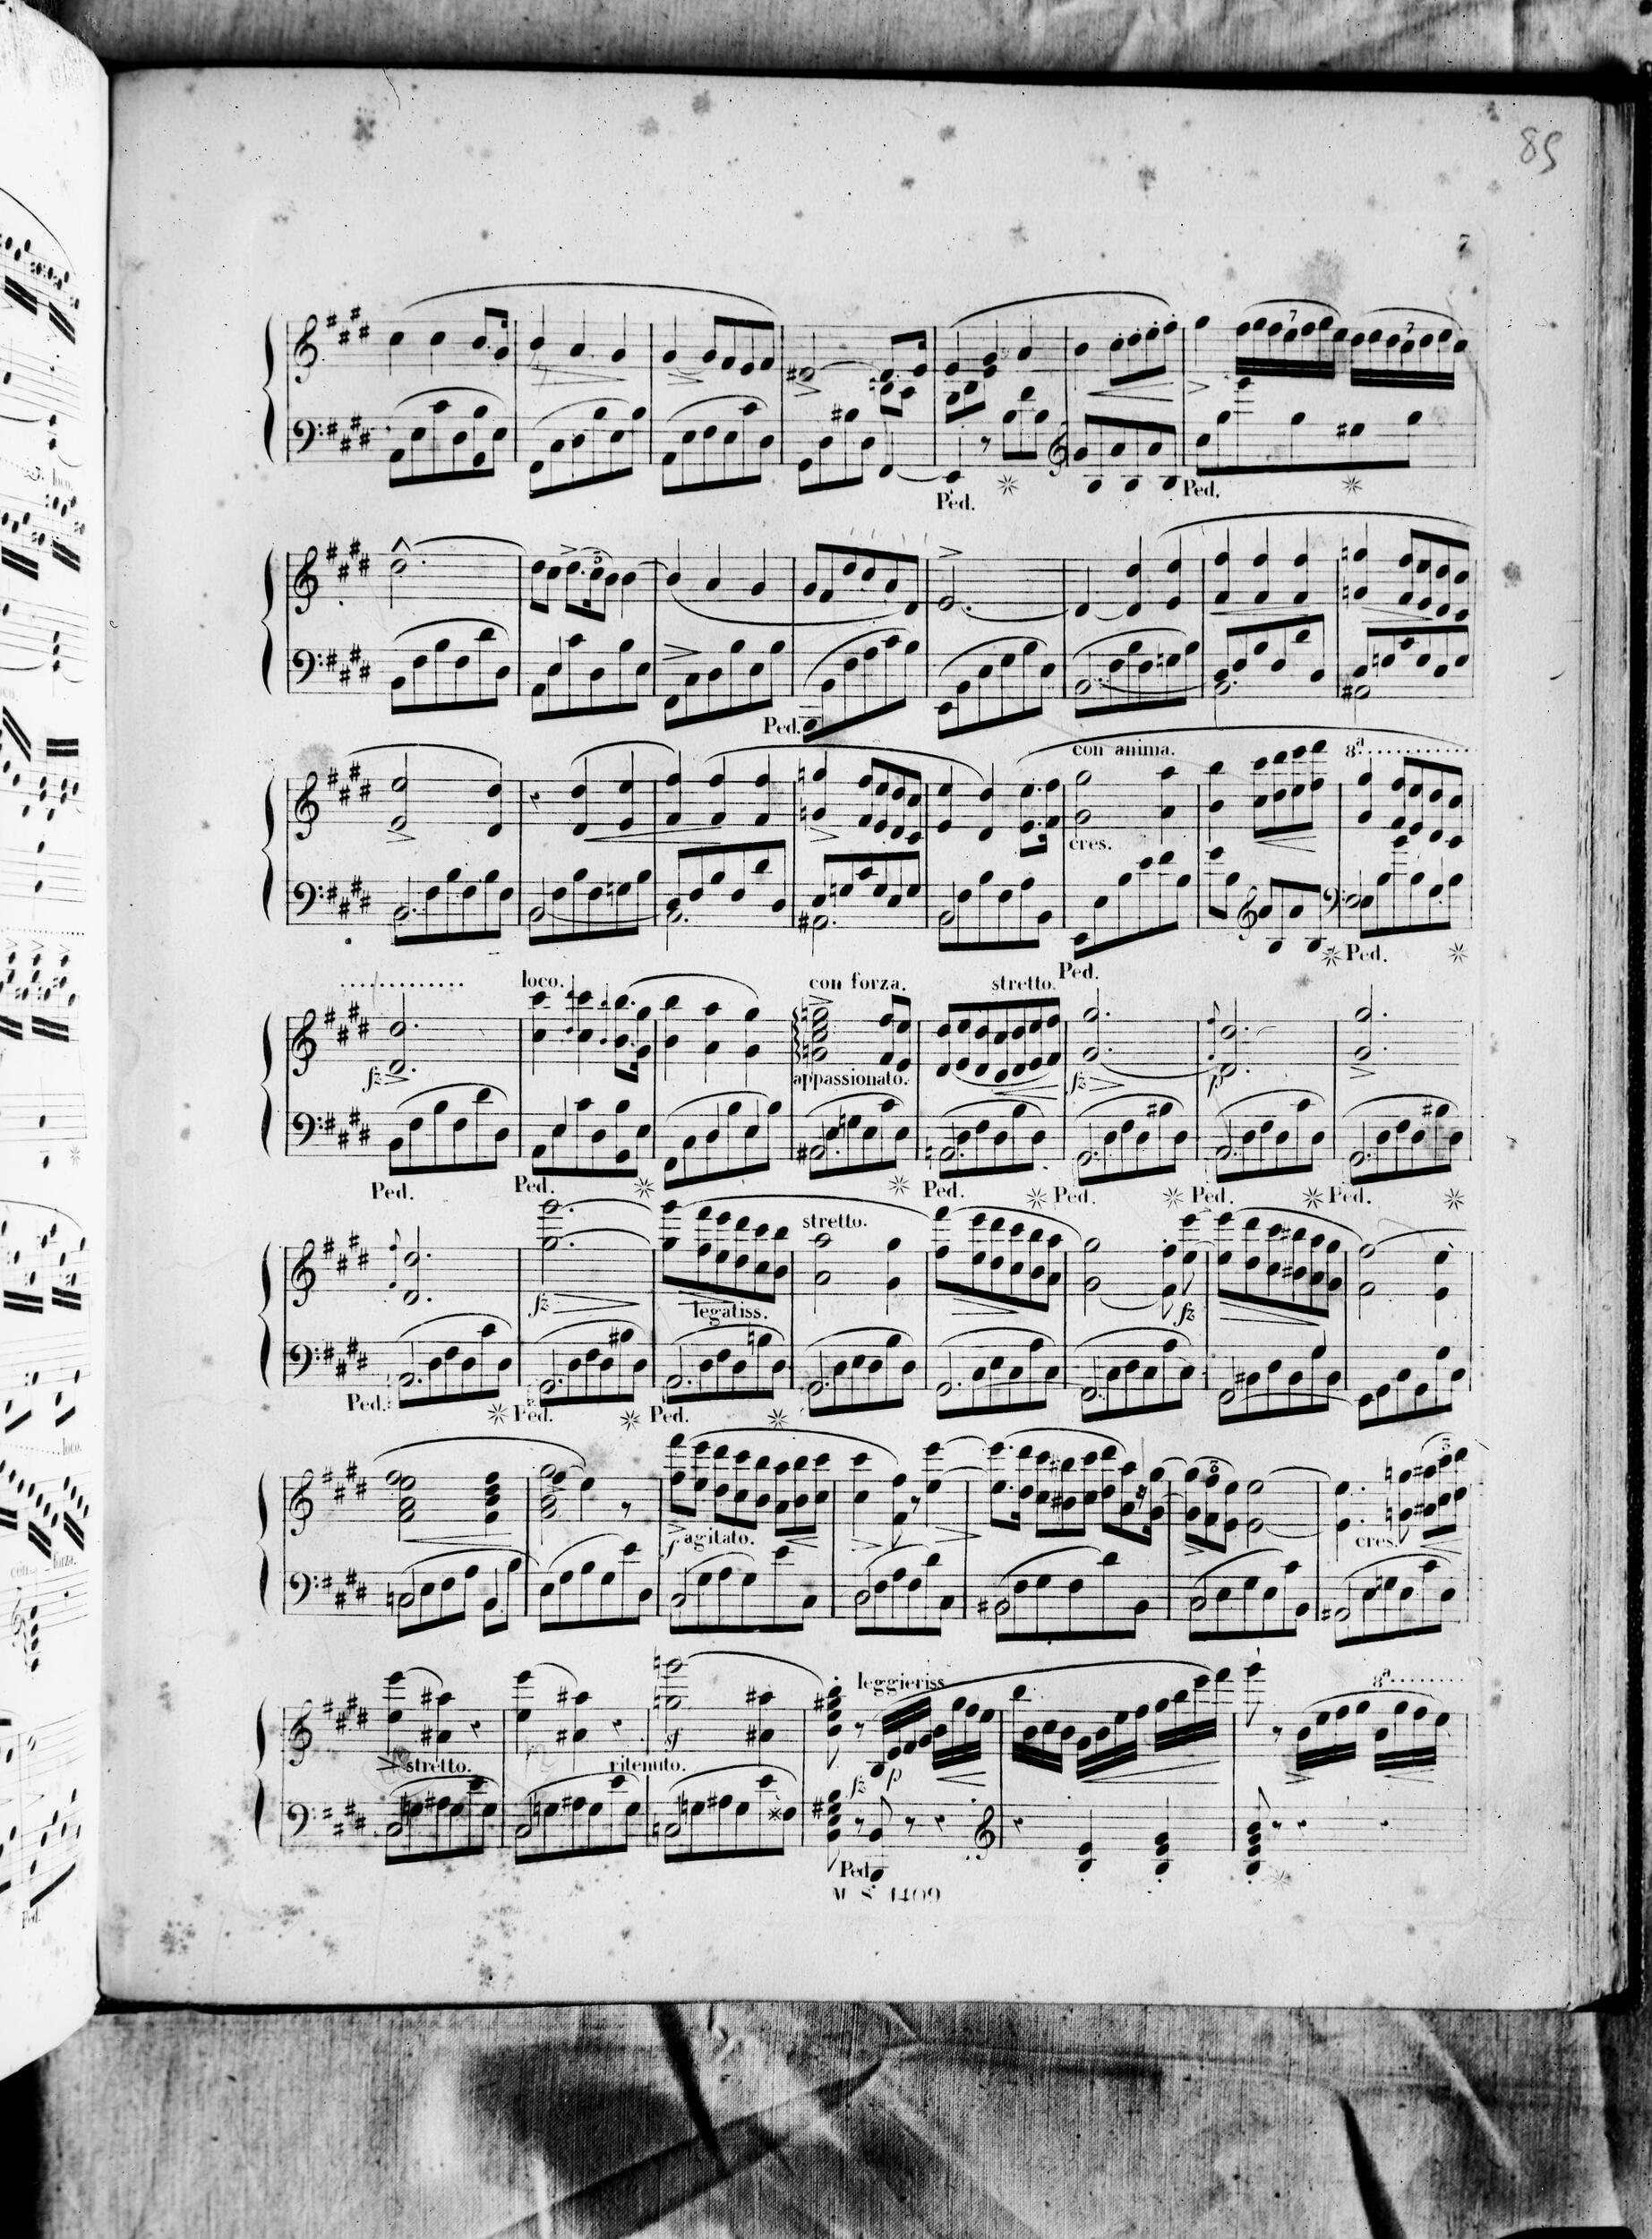 85
7
7 7
Ped. ✳ Ped. ✳
3
Ped.
con anima. 8ª
cres.
Ped. ✳ Ped. ✳
loco. con forza. stretto.
fz appassionato. fz p
Ped. Ped. ✳ ✳ Ped. ✳ Ped. ✳ Ped. ✳ Ped. ✳
stretto.
fz legatiss. fz
Ped. ✳ Ped. ✳ Ped. ✳
3 3
f agitato. cres.
leggieriss. 8ª
stretto. ritenuto. sf fz p
Ped. ✳
M. S. 1409
loco.
loco.
con forza.
Ped.